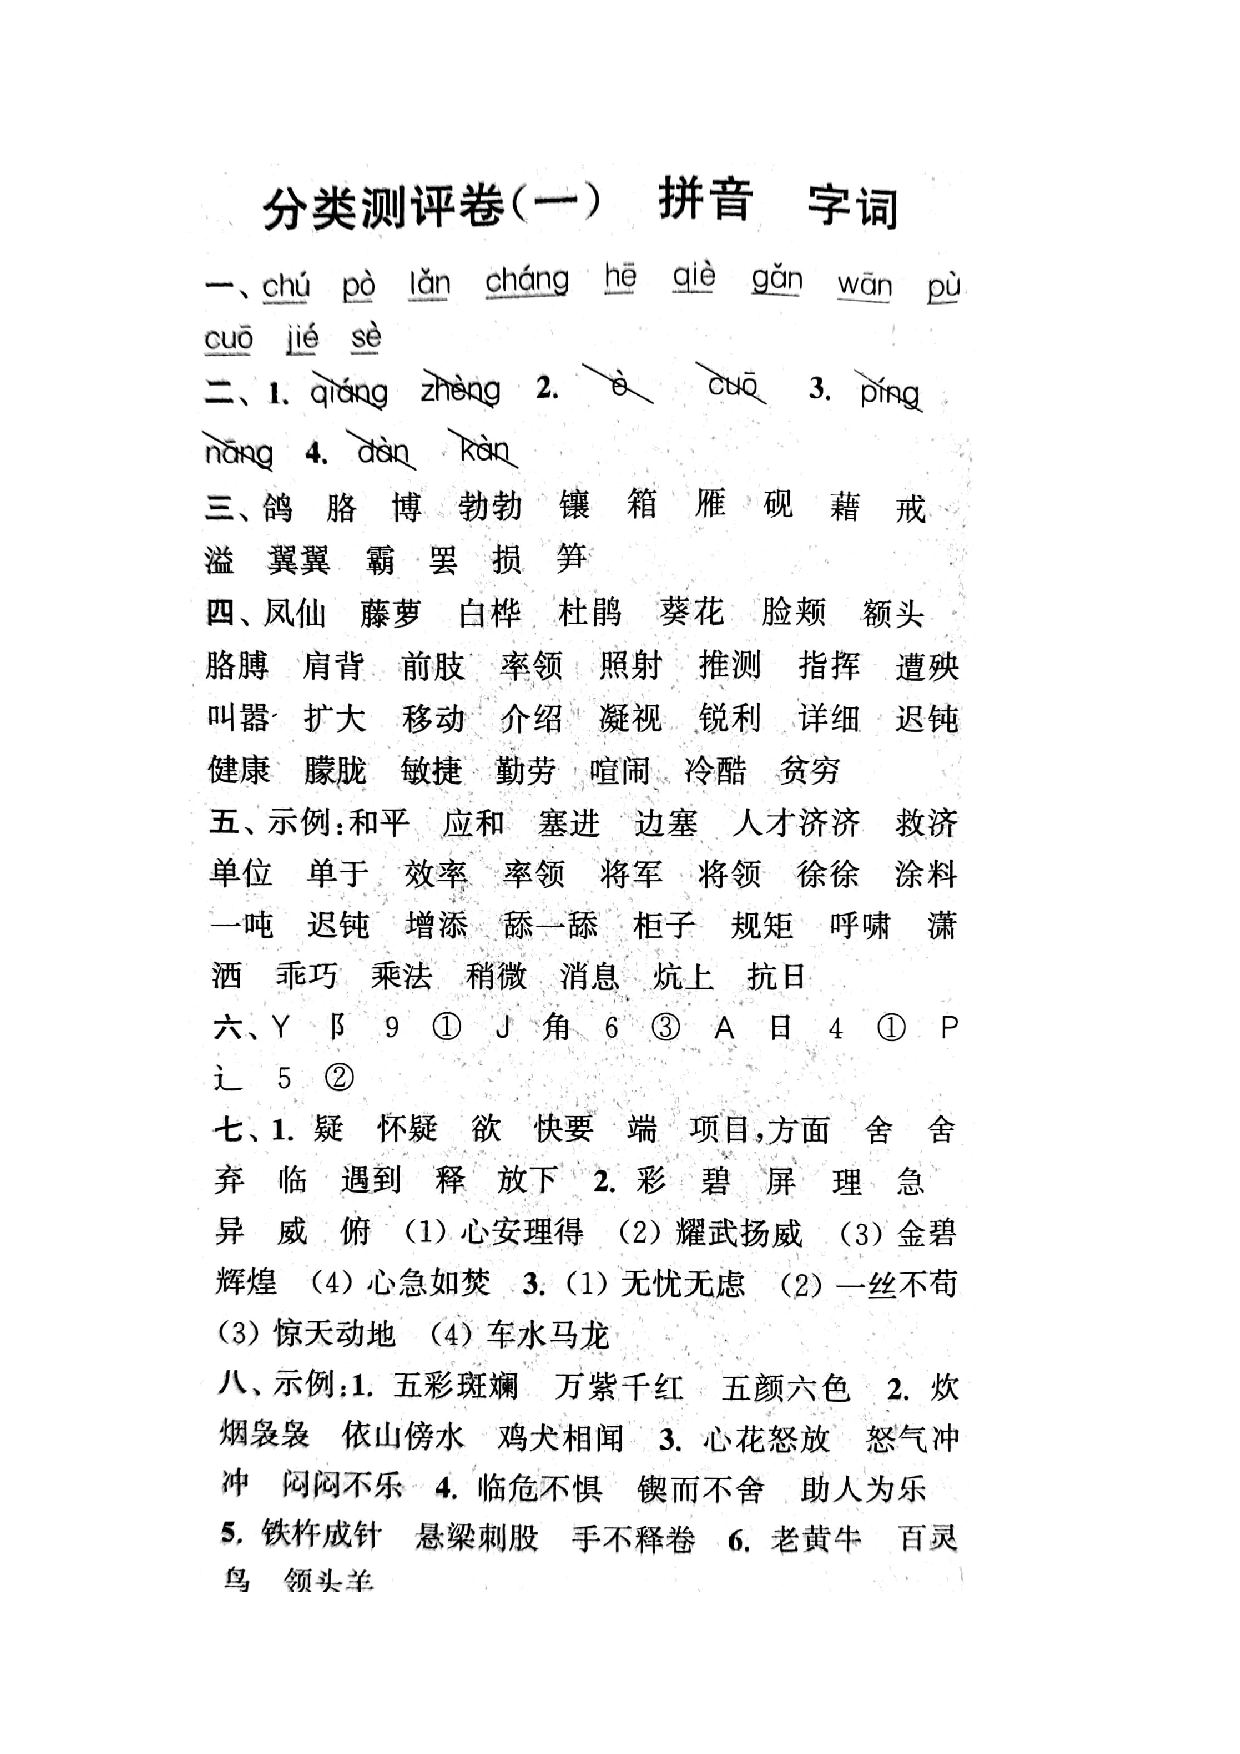 分类测评卷(一) 拼音 字词
一、chú pò lǎn cháng hē qiè gǎn wān pù
cuō jié sè
二、1. qiáng zhèng 2. è cuō 3. píng
nāng 4. dàn kàn
三、鸽 胳 博 勃勃 镶 箱 雁 砚 藉 戒
溢 翼翼 霸 罢 损 笋
四、凤仙 藤萝 白桦 杜鹃 葵花 脸颊 额头
胳膊 肩背 前肢 率领 照射 推测 指挥 遭殃
叫嚣 扩大 移动 介绍 凝视 锐利 详细 迟钝
健康 朦胧 敏捷 勤劳 喧闹 冷酷 贫穷
五、示例:和平 应和 塞进 边塞 人才济济 救济
单位 单于 效率 率领 将军 将领 徐徐 涂料
一吨 迟钝 增添 舔一舔 柜子 规矩 呼啸 潇
洒 乖巧 乘法 稍微 消息 炕上 抗日
六、Y 阝 9 ① J 角 6 ③ A 日 4 ① P
辶 5 ②
七、1. 疑 怀疑 欲 快要 端 项目,方面 舍 舍
弃 临 遇到 释 放下 2. 彩 碧 屏 理 急
异 威 俯 (1)心安理得 (2)耀武扬威 (3)金碧
辉煌 (4)心急如焚 3. (1)无忧无虑 (2)一丝不苟
(3)惊天动地 (4)车水马龙
八、示例:1. 五彩斑斓 万紫千红 五颜六色 2. 炊
烟袅袅 依山傍水 鸡犬相闻 3. 心花怒放 怒气冲
冲 闷闷不乐 4. 临危不惧 锲而不舍 助人为乐
5. 铁杵成针 悬梁刺股 手不释卷 6. 老黄牛 百灵
鸟 领头羊